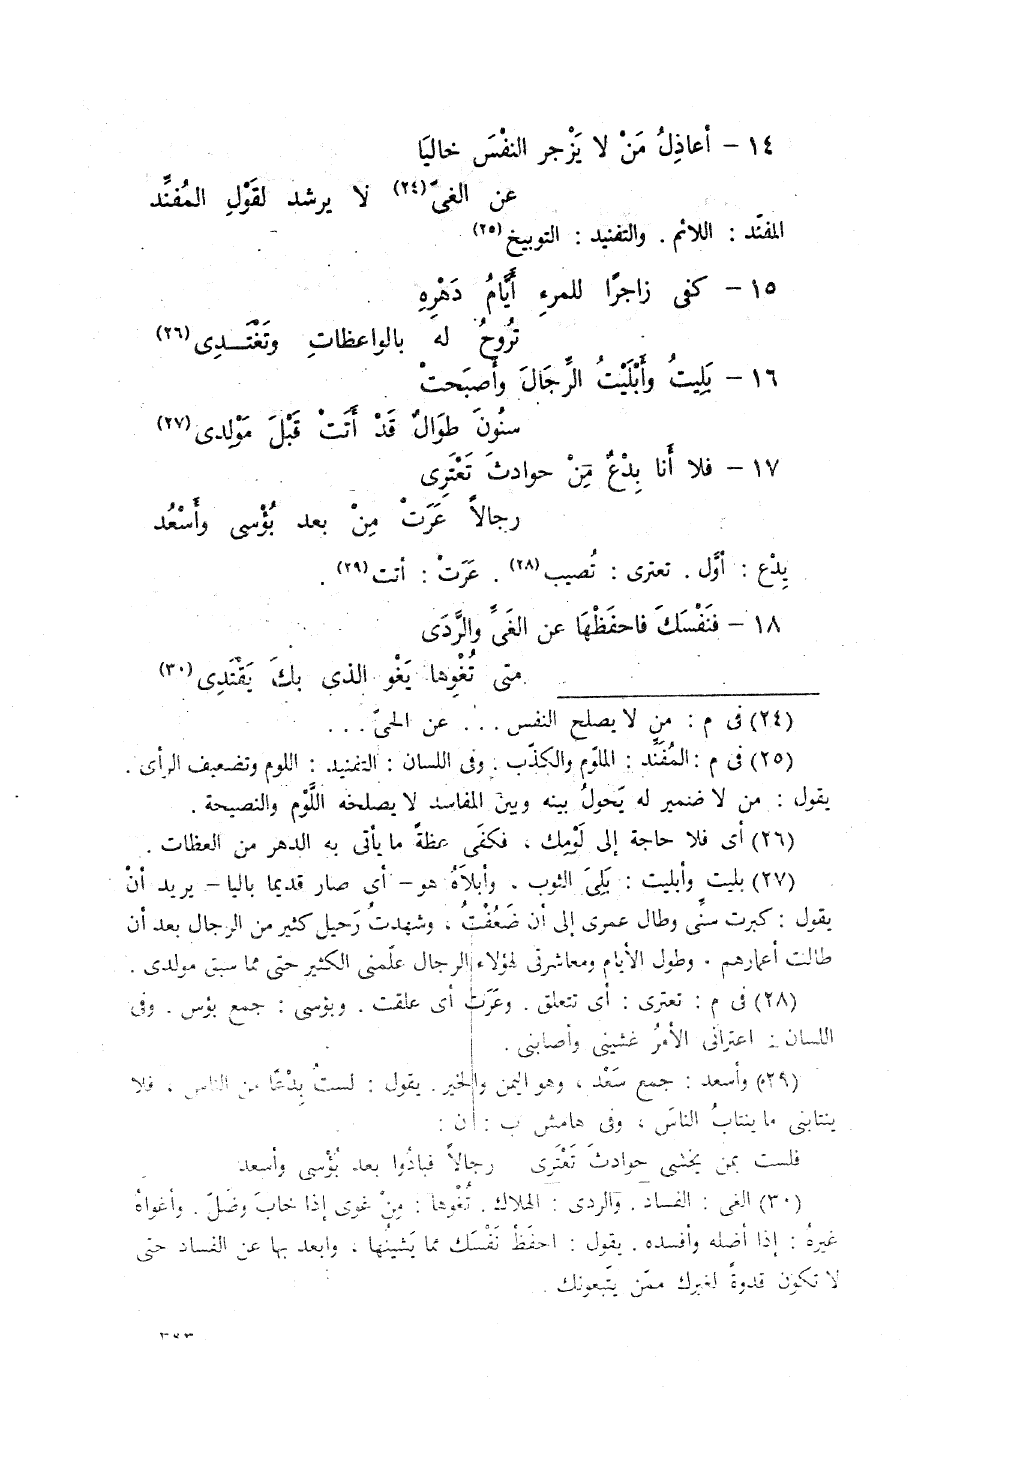 ١٤ – أعاذِلُ مَنْ لا يَزْجر النفْسَ خاليَا
عن الغىّ(٢٤) لا يرشد لقَوْلِ المُفنَّد
المفنّد : اللائم . والتفنيد : التوبيخ(٢٥)
١٥ – كفى زاجرًا للمرءِ أيَّامُ دَهْرِهِ
تُروحُ له بالواعظاتِ وتَغْتَــدِى(٢٦)
١٦ – بَلِيتُ وأَبْلَيْتُ الرِّجَالَ وأَصبَحتْ
سنُونَ طوَالٌ قَدْ أَتَتْ قَبْلَ مَوْلِدى(٢٧)
١٧ – فلا أَنا بِدْعٌ مِّنْ حوادثَ تَعْتَرِى
رجالاً عَرَتْ مِنْ بعد بُؤْسى وأَسْعُد
بِدْع : أوَّل . تعترى : تُصيب(٢٨) . عَرَتْ : أتت(٢٩) .
١٨ – فنَفْسَكَ فاحفَظْهَا عن الغَىِّ والرَّدَى
متى تُغْوِها يَغْو الذى بكَ يَقْتَدِى(٣٠)
(٢٤) فى م : من لا يصلح النفس ... عن الحىّ ...
(٢٥) فى م : المُفَنِّد : الملوّم والكذّب . وفى اللسان : التفنيد : اللوم وتضعيف الرأى .
يقول : من لا ضمير له يَحولُ بينه وبين المفاسد لا يصلحه اللَّوْم والنصيحة .
(٢٦) أى فلا حاجة إلى لَوْمِك ، فكفَى عظةً ما يأتى به الدهر من العظات .
(٢٧) بليت وأبليت : بَلِىَ الثوب . وأبلاَهُ هو – أى صار قديما باليا – يريد أنْ
يقول : كبرت سنِّى وطال عمرى إلى أن ضَعُفْتُ ، وشهدتُ رَحيل كثير من الرجال بعد أن
طالت أعمارهم . وطول الأيام ومعاشرتى لهؤلاء الرجال علّمنى الكثير حتى مما سبق مولدى .
(٢٨) فى م : تعترى : أى تتعلق . وعَرَت أى علقت . وبؤسى : جمع بؤس . وفى
اللسان : اعترانى الأمرُ غشينى وأصابنى .
(٢٩) وأسعد : جمع سَعْد ، وهو اليمن والخير . يقول : لستُ بِدْعًا من الناس ، فلا
ينتابنى ما ينتابُ الناسَ ، وفى هامش ب : ن :
فلست بمن يخشى حوادثَ تَعْتَرِى رجالاً فبادُوا بعد بُؤْسى وأسعد
(٣٠) الغى : الفساد . والردى : الهلاك . تُغْوها : مِنْ غوى إذا خابَ وضَلَّ . وأغواهُ
غيرهُ : إذا أضله وأفسده . يقول : احفَظْ نَفْسَك مما يَشينُها ، وابعد بها عن الفساد حتى
لا تكون قدوةً لغيرك ممّن يتّبعونك .